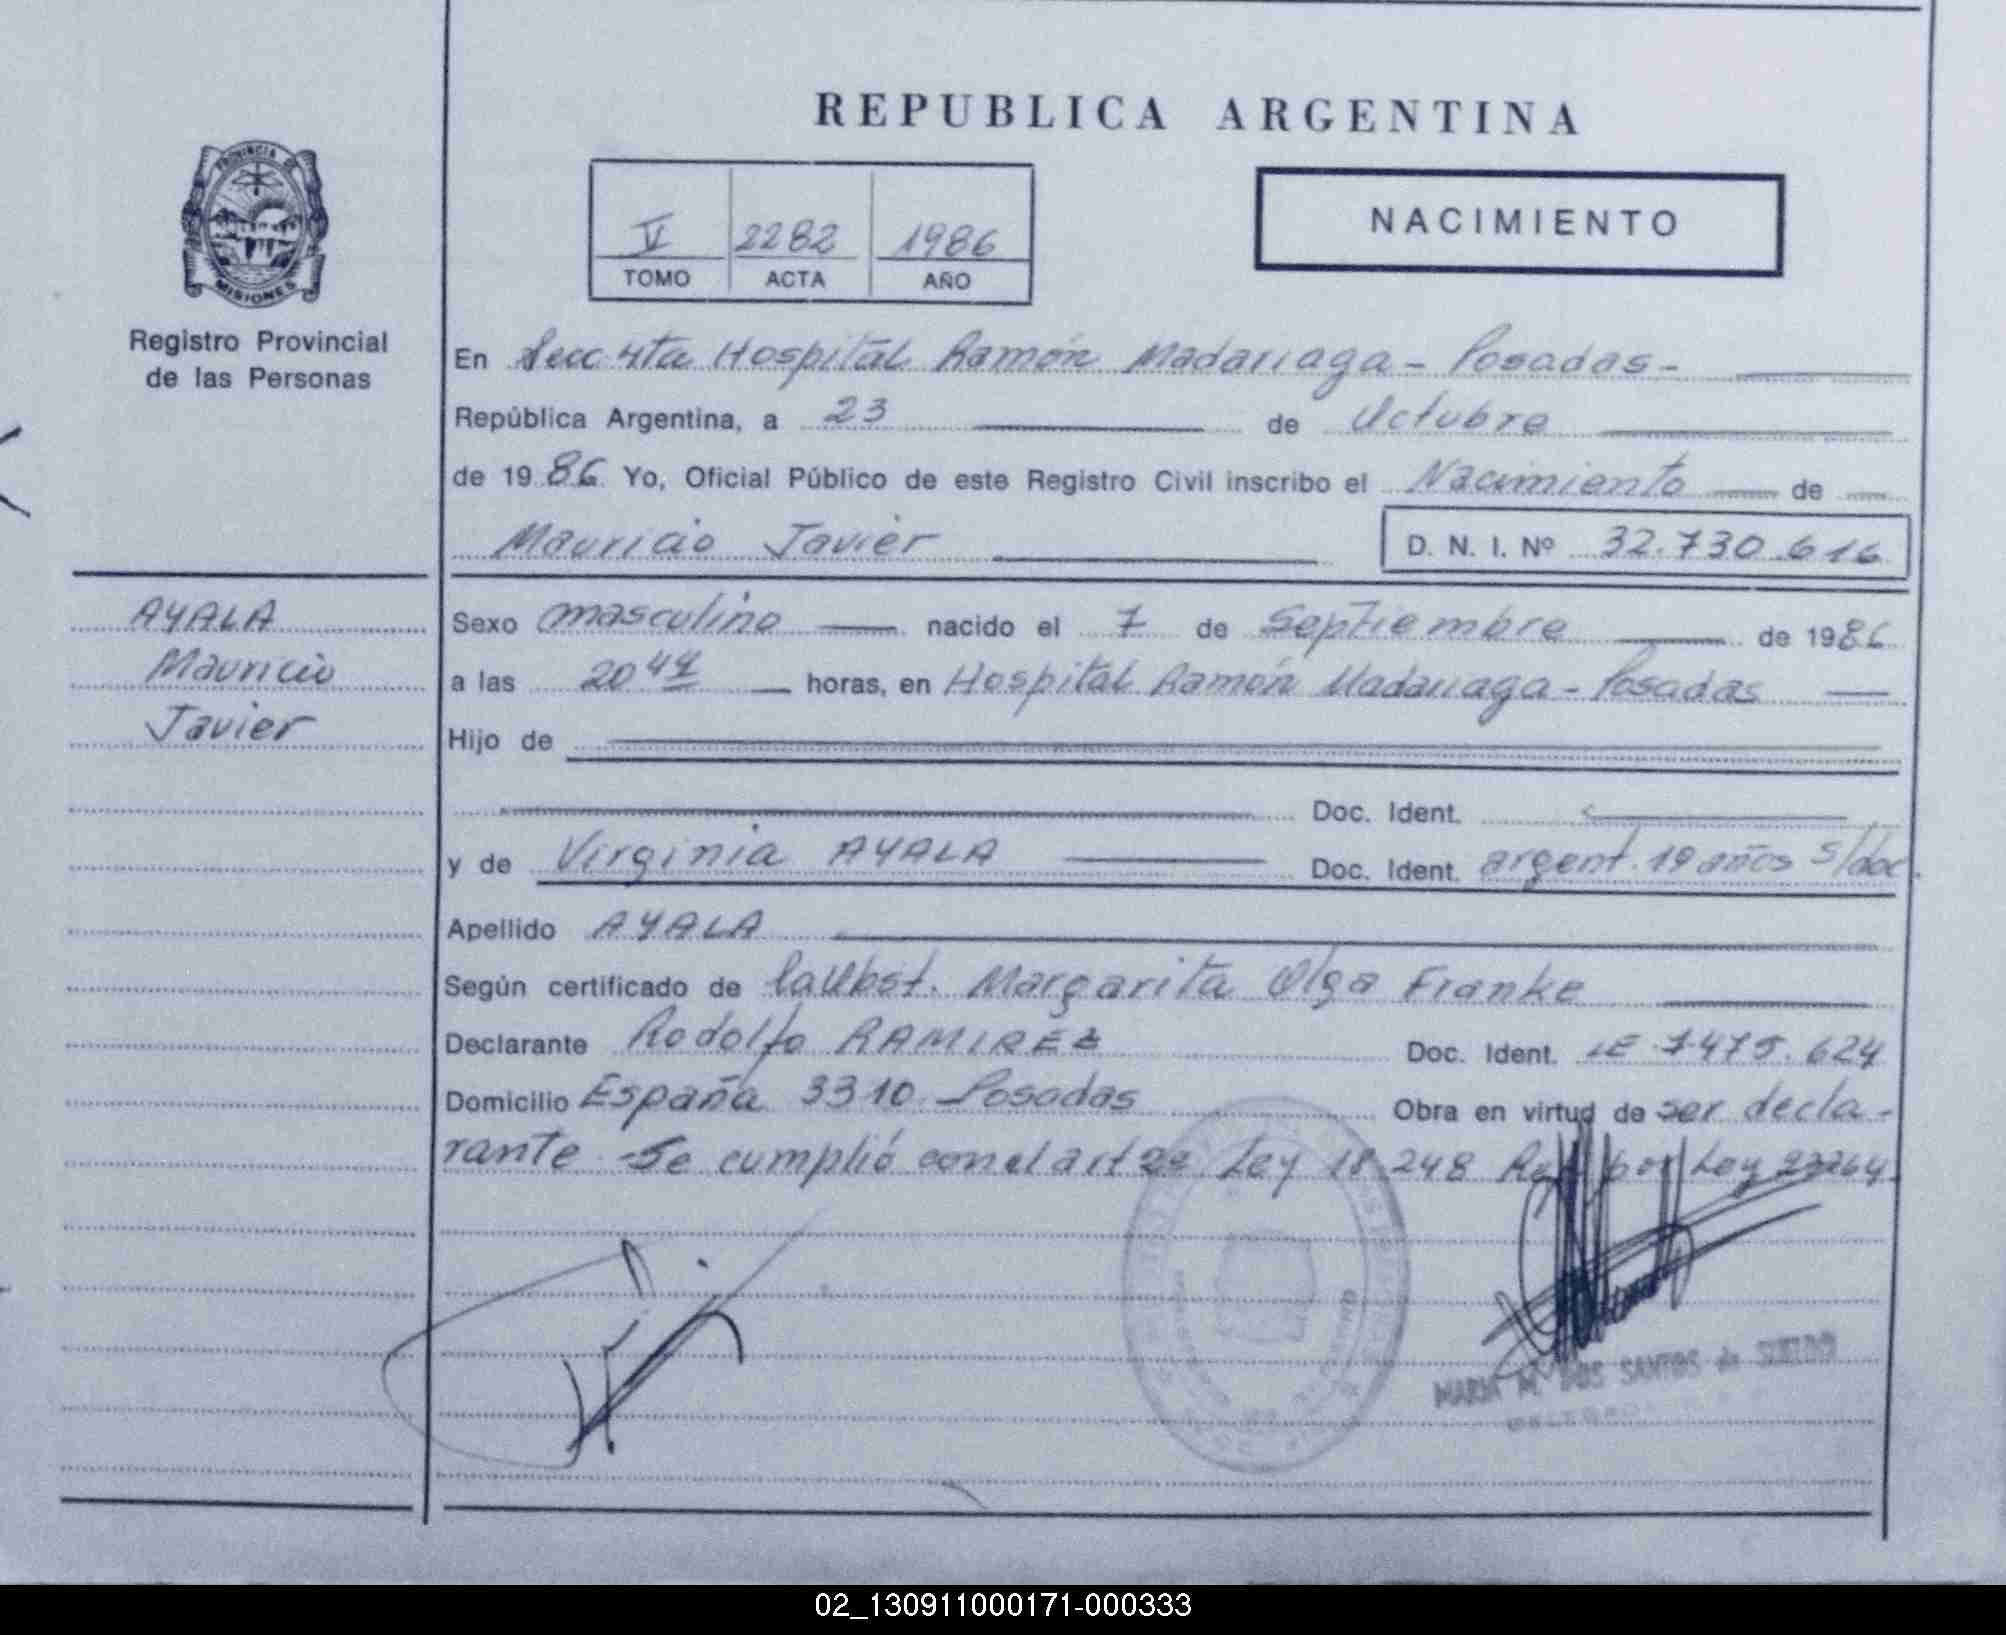 REPUBLICA ARGENTINA
PROVINCIA DE
MISIONES
Registro Provincial
de las Personas
V 2282 1986
TOMO ACTA AÑO
NACIMIENTO
En Secc 4ta Hospital Ramón Madariaga - Posadas -
República Argentina, a 23 de Octubre
de 1986 Yo, Oficial Público de este Registro Civil inscribo el Nacimiento de
Mauricio Javier D. N. I. Nº 32.730.616
AYALA
Mauricio
Javier
Sexo masculino nacido el 7 de Septiembre de 1986
a las 20 horas, en Hospital Ramón Madariaga - Posadas
Hijo de
Doc. Ident.
y de Virginia AYALA Doc. Ident. argent. 19 años s/doc.
Apellido AYALA
Según certificado de Margarita Olga Franke
Declarante Rodolfo RAMIREZ Doc. Ident. LE 7475.624
Domicilio España 3310 Posadas Obra en virtud de ser decla-
rante - Se cumplió con el art 2º Ley 18.248 por Ley
MARIA M. DOS SANTOS de
02_130911000171-000333